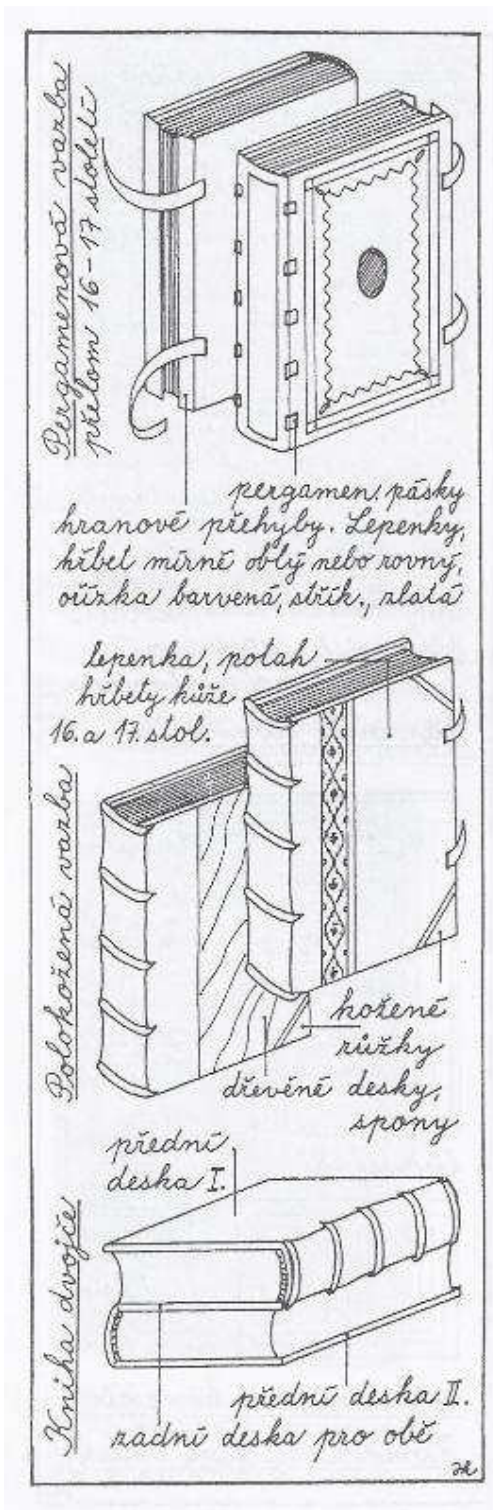 Pergamenová vazba
přelom 16-17 století
pergamen. pásky
hranové přehyby. Lepenky,
hřbet mírně oblý nebo rovný,
ořízka barvená, střík., zlatá
Polokožená vazba
lepenka, potah
hřbety kůže
16. a 17. stol.
kožené
růžky
dřevěné desky,
spony
Kniha dvojče
přední
deska I.
přední deska II.
zadní deska pro obě